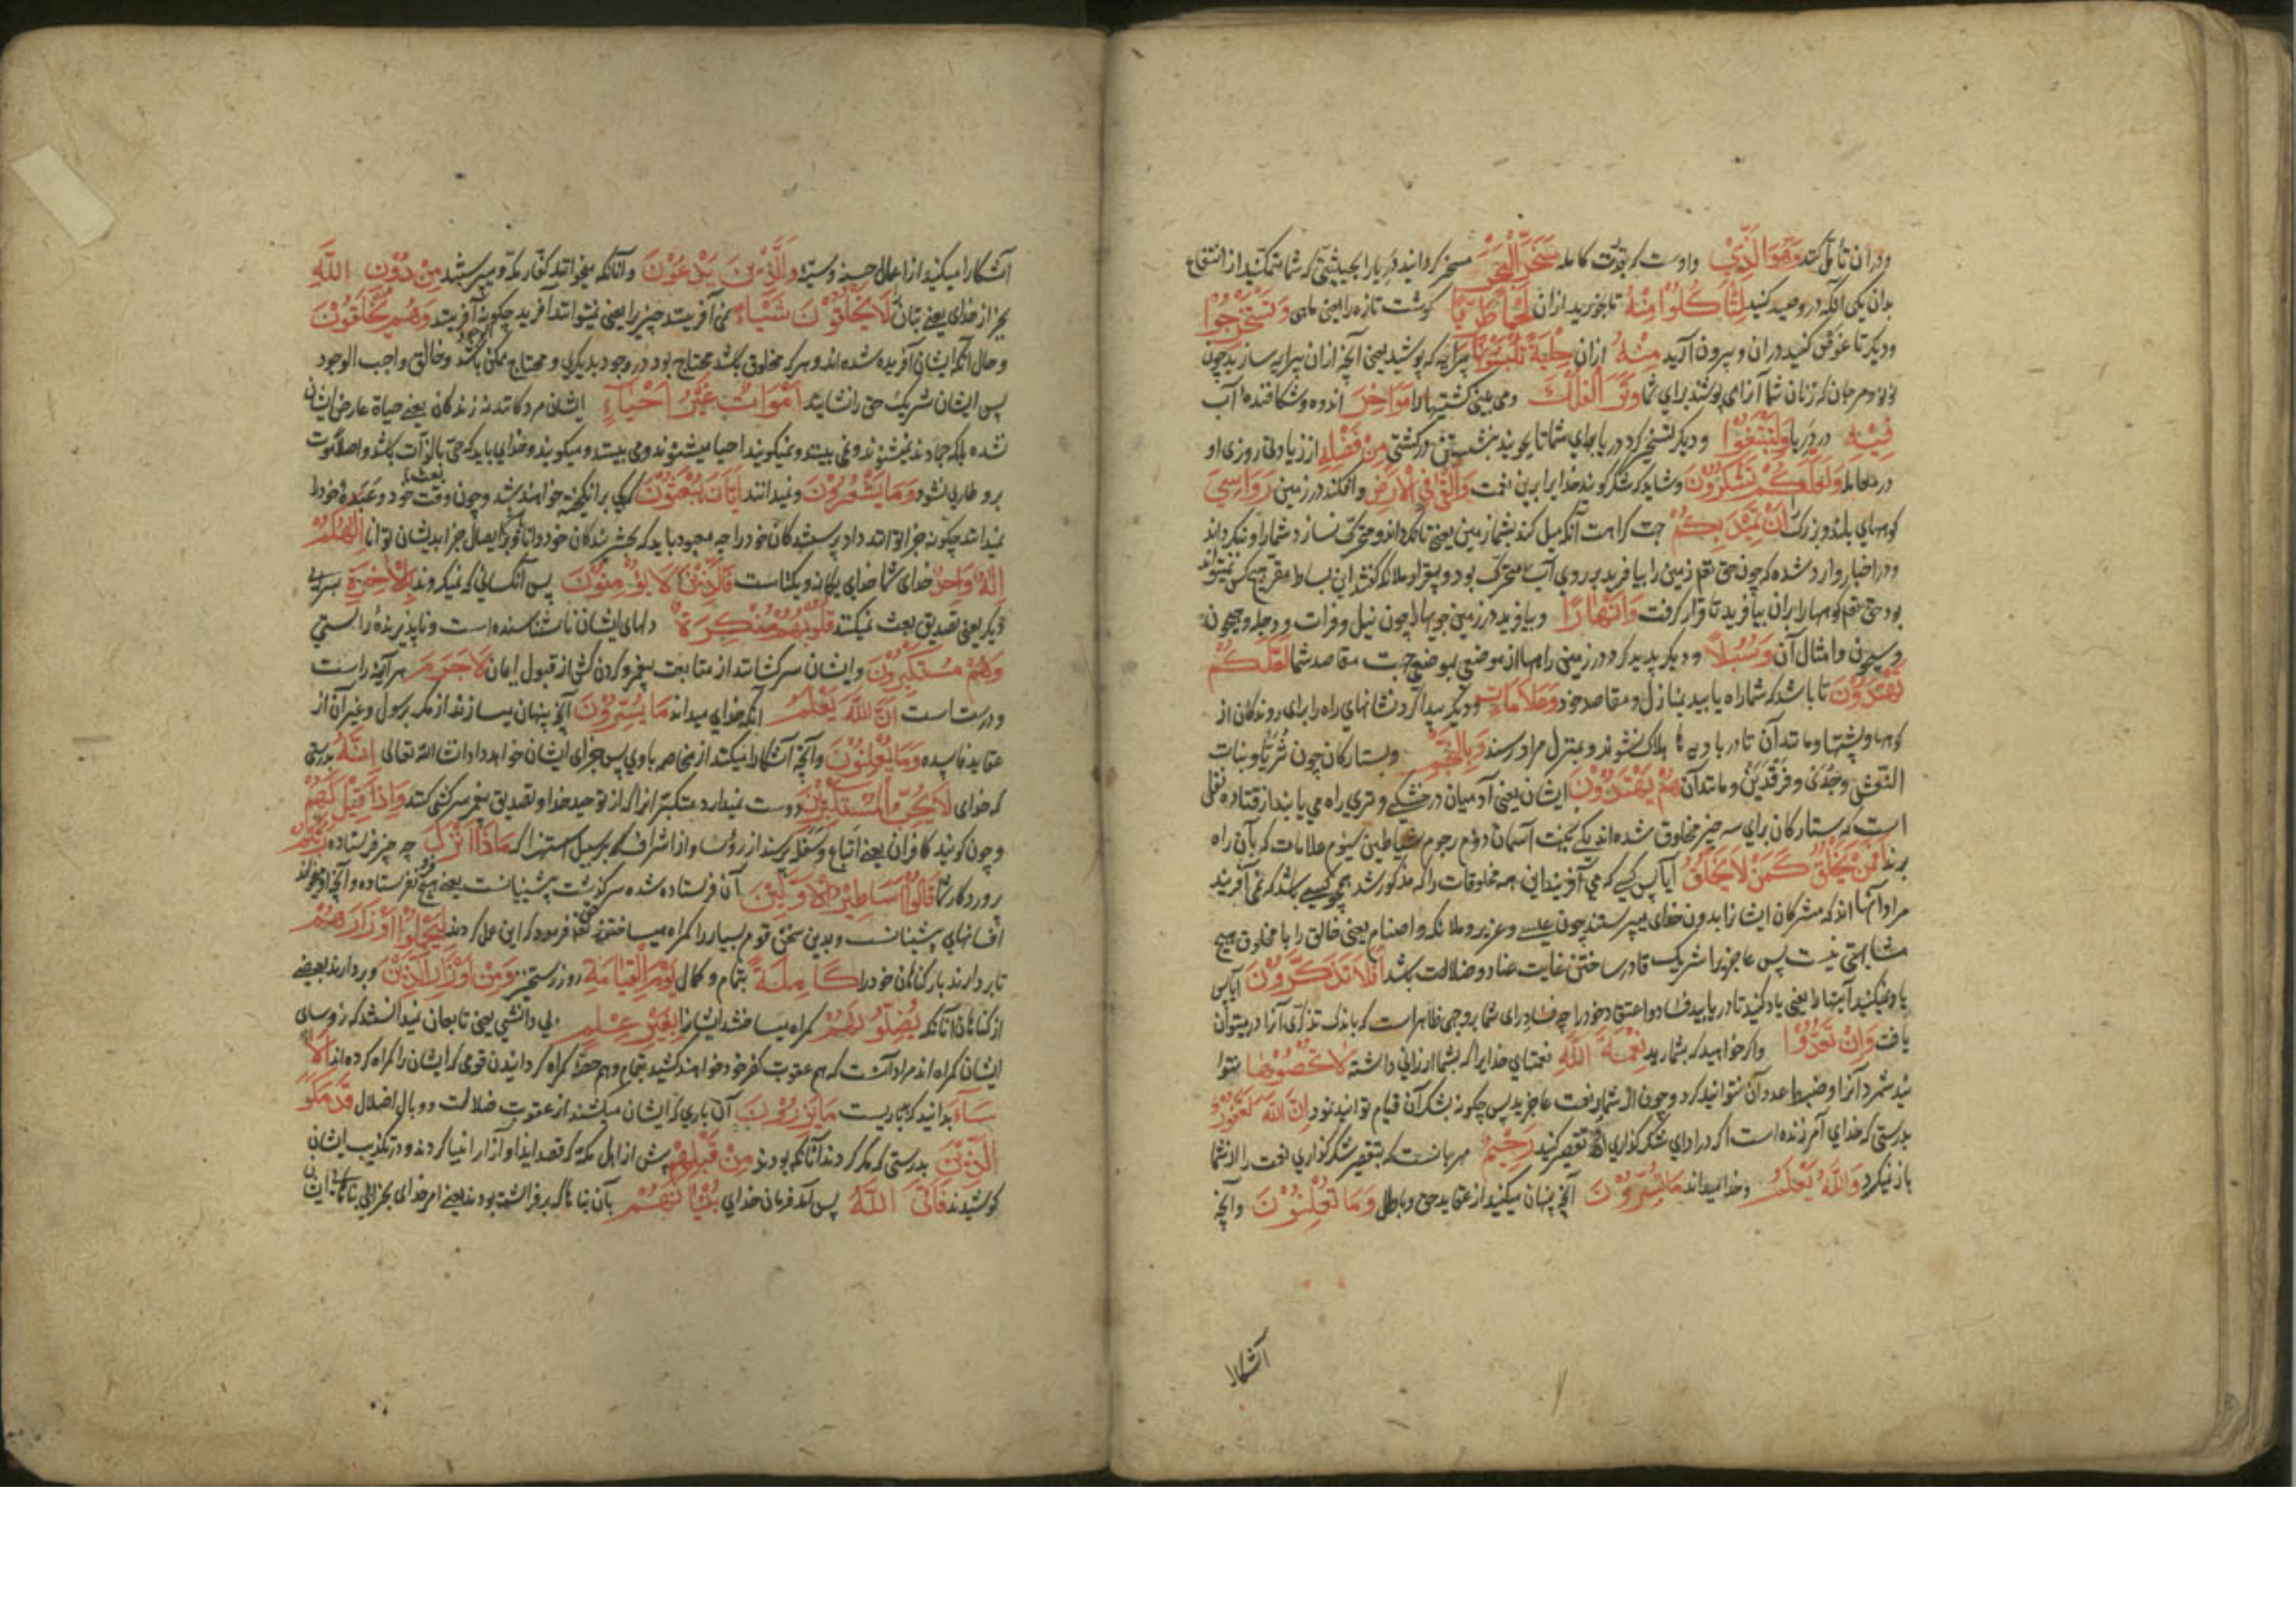 ودران تأمل کنند وَهُوَ الَّذِي واوست که بقدرت کامله سَخَّرَ الْبَحْرَ مسخر کردانید دریا را بحیثیتی که شما متمکنید از انتفاع
بدان یکی آنکه درو صید کنید لِتَأْكُلُوا مِنْهُ تا بخورید ازان لَحْمًا طَرِيًّا کوشت تازه را یعنی ماهی وَتَسْتَخْرِجُوا
ودیکر تا غوص کنید دران و بیرون آرید مِنْهُ ازان حِلْيَةً تَلْبَسُونَهَا پیرایه که پوشید یعنی آنچه ازان پیرایه سازند چون
لولو و مرجان که زنان شما آنرا می پوشند برای شما وَتَرَى الْفُلْكَ ومی بینی کشتیها را مَوَاخِرَ رونده و شکافنده آب
فِيهِ در دریا وَلِتَبْتَغُوا ودیکر تسخیر کرد دریا برای شما تا بجویید بنشستن در کشتی مِنْ فَضْلِهِ از زیادتی روزی او
در معامله وَلَعَلَّكُمْ تَشْكُرُونَ وشاید که شکر کویید خدایرا برین نعمت وَأَلْقَى فِي الْأَرْضِ وافکند در زمین رَوَاسِيَ
کوههای بلند و بزرک أَنْ تَمِيدَ بِكُمْ جهت کراهت آنکه میل کند بشما زمین یعنی تا نکرداند و متحرک نسازد شما را و نکرداند
ودر اخبار وارد شده که چون حق تعم زمین را بیافرید بر روی آب متحرک بود و بیقرار و ملائکه کفتند این بساط مقر هیچ کس نمیتواند
بود حق تعم کوهها را بران بیافرید تا قرار کرفت وَأَنْهَارًا وبیافرید در زمین جویها چون نیل و فرات و دجله و جیحون
و سیحون و امثال آن وَسُبُلًا ودیکر پدید کرد در زمین راهها از موضعی بموضعی جهت مقاصد شما لَعَلَّكُمْ
تَهْتَدُونَ تا باشد که شما راه یابید بمنازل و مقاصد خود وَعَلَامَاتٍ ودیکر پیدا کرد نشانهای راه را برای روندکان از
کوهها و پشتها و مانند آن تا در بادیه ها هلاک نشوند و بمنزل مراد رسند وَبِالنَّجْمِ وبستارکان چون ثریا و بنات
النعش و جدی و فرقدین و مانند آن هُمْ يَهْتَدُونَ ایشان یعنی آدمیان در خشکی و تری راه می یابند از قتاده نقل
است که ستارکان برای سه چیز مخلوق شده اند یکی زینت آسمان دوم رجوم شیاطین سیوم علامات که بآن راه
برند أَفَمَنْ يَخْلُقُ كَمَنْ لَا يَخْلُقُ آیا پس کسی که می آفریند این همه مخلوقات را که مذکور شد همچو کسی باشد که نمی آفریند
مراد آنها اند که مشرکان ایشانرا بدون خدای میپرستند چون عیسی و عزیر و ملائکه و اصنام یعنی خالق را با مخلوق هیچ
مشابهتی نیست پس عاجز را شریک قادر ساختن غایت عناد و ضلالت باشد أَفَلَا تَذَكَّرُونَ آیا پس
یاد نمیکنید آیتها را یعنی یاد کنید تا دریابید فساد اعتقاد خود را چه فساد رای شما بروجهی ظاهر است که باندک تذکری آنرا در میتوان
یافت وَإِنْ تَعُدُّوا واکر خواهید که بشمارید نِعْمَةَ اللَّهِ نعمتهای خدایرا که بشما ارزانی داشته لَا تُحْصُوهَا نتوا
نید شمرد آنرا و ضبط عدد آن نتوانید کرد و چون از شمار نعمت عاجزید پس چکونه بشکر آن قیام توانید نمود إِنَّ اللَّهَ لَغَفُورٌ
بدرستی که خدای آمرزنده است اکر در ادای شکرکذاری او تقصیر کنید رَحِيمٌ مهربانست که بتقصیر شکرکذاری نعمت را از شما
باز نکیرد وَاللَّهُ يَعْلَمُ وخدا میداند مَا تُسِرُّونَ آنچه پنهان میکنید از عقاید حق و باطل وَمَا تُعْلِنُونَ وآنچه
آشکارا
آشکارا میکنید از اعمال حسنه و سیئه وَالَّذِينَ يَدْعُونَ وآنانکه میخوانند کفار مکه و میپرستند مِنْ دُونِ اللَّهِ
بجز از خدای یعنی بتان لَا يَخْلُقُونَ شَيْئًا نمی آفرینند چیزی را یعنی نمیتوانند آفرید چکونه آفرینند وَهُمْ يُخْلَقُونَ
وحال آنکه ایشان آفریده شده اند و هر که مخلوق باشد محتاج بود در وجود بدیکری و محتاج ممکن باشد و خالق واجب الوجود
پس ایشان شریک حق را نشایند أَمْوَاتٌ غَيْرُ أَحْيَاءٍ ایشان مردکانند نه زندکان یعنی حیاة عارض ایشان
نشده بلکه جمادند نمیشنوند و نمی بینند و نمیکویند احیا میشنوند و می بینند و میکویند و خدای باید که حی بالذات باشد و اصلا موت
برو طاری نشود وَمَا يَشْعُرُونَ ونمیدانند أَيَّانَ يُبْعَثُونَ کی برانکیخته خواهند شد و چون وقت بعث خود و عبده خود را
نمیدانند چکونه جزا توانند داد پرستندکان خود را چه معبود باید که بحشر بندکان خود دانا و بر ایصال جزا بدیشان توانا إِلَهُكُمْ
إِلَهٌ وَاحِدٌ خدای شما خدای یکانه و یکتاست فَالَّذِينَ لَا يُؤْمِنُونَ پس آنکسانی که نمیکروند بِالْآخِرَةِ بسرای
دیکر یعنی تصدیق بعث نمیکنند قُلُوبُهُمْ مُنْكِرَةٌ دلهای ایشان ناشناسنده است و ناپذیرنده راستی
وَهُمْ مُسْتَكْبِرُونَ وایشان سرکشانند از متابعت پیغمبر و کردن کش از قبول ایمان لَا جَرَمَ هر آینه راست
و درست است أَنَّ اللَّهَ يَعْلَمُ آنکه خدای میداند مَا يُسِرُّونَ آنچه پنهان میسازند از مکر برسول و غیر آن از
عقاید فاسده وَمَا يُعْلِنُونَ وآنچه آشکارا میکنند از مخاصمه با وی پس جزای ایشان خواهد داد انشاء الله تعالی إِنَّهُ بدرستی
که خدای لَا يُحِبُّ الْمُسْتَكْبِرِينَ دوست نمیدارد متکبرانرا که از توحید خدا و تصدیق پیغمبر سرکشی کنند وَإِذَا قِيلَ لَهُمْ
وچون کویند کافران یعنی اتباع و سفله پرسند از رؤسا و از اشراف که بر سبیل استهزا که مَاذَا أَنْزَلَ چه چیز فرستاده رَبُّكُمْ
پروردکار شما قَالُوا أَسَاطِيرُ الْأَوَّلِينَ آن فرستاده شده سرکذشت پیشینیانست یعنی هیچ نفرستاده و آنچه او میخواند
افسانهای پیشینیانست و بدین سخن قوم بسیار را کمراه میساختند حق تعم فرمود که این عمل کردند لِيَحْمِلُوا أَوْزَارَهُمْ
تا بردارند بار کناهان خود را كَامِلَةً بتمام و کمال يَوْمَ الْقِيَامَةِ روز رستخیز وَمِنْ أَوْزَارِ الَّذِينَ وبردارند بعضی
از کناهان آنانکه يُضِلُّونَهُمْ کمراه میساختند ایشانرا بِغَيْرِ عِلْمٍ بی دانشی یعنی تابعان نمیدانستند که رؤسای
ایشان کمراه اند مراد آنست که هم عقوبت کفر خود خواهند کشید بتمام و هم حصه کمراه کردانیدن قومی که ایشان را کمراه کرده اند أَلَا
سَاءَ بدانید که بد باریست مَا يَزِرُونَ آن باری که ایشان میکشند از عقوبت ضلالت و وبال اضلال قَدْ مَكَرَ
الَّذِينَ بدرستی که مکر کردند آنانکه بودند مِنْ قَبْلِهِمْ پیش از اهل مکه که قصد ایذا و آزار انبیا کردند و در تکذیب ایشان
کوشیدند فَأَتَى اللَّهُ پس آمد فرمان خدای بُنْيَانَهُمْ بآن بناها که برافراشته بودند یعنی امر خدای بخرابی بناهای ایشان